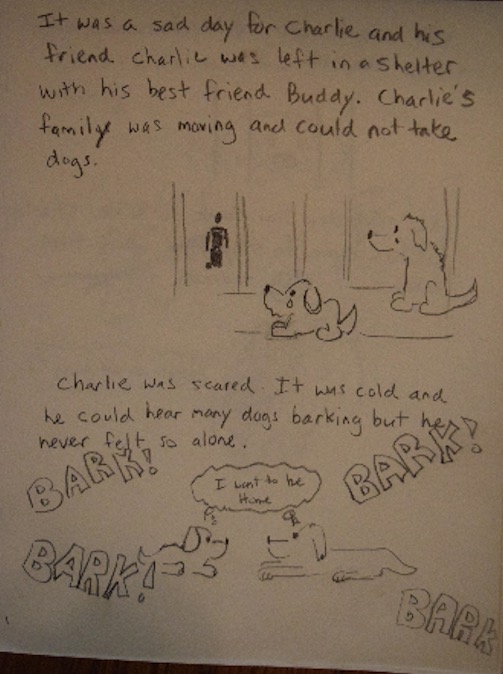 It was a sad day for Charlie and his
friend Charlie was left in a shelter
with his best friend Buddy. Charlie's
family was moving and could not take
dogs.
Charlie was scared. It was cold and
he could hear many dogs barking but he
never felt so alone.
BARK!
BARK!
I want to be
Home
BARK!
BARK